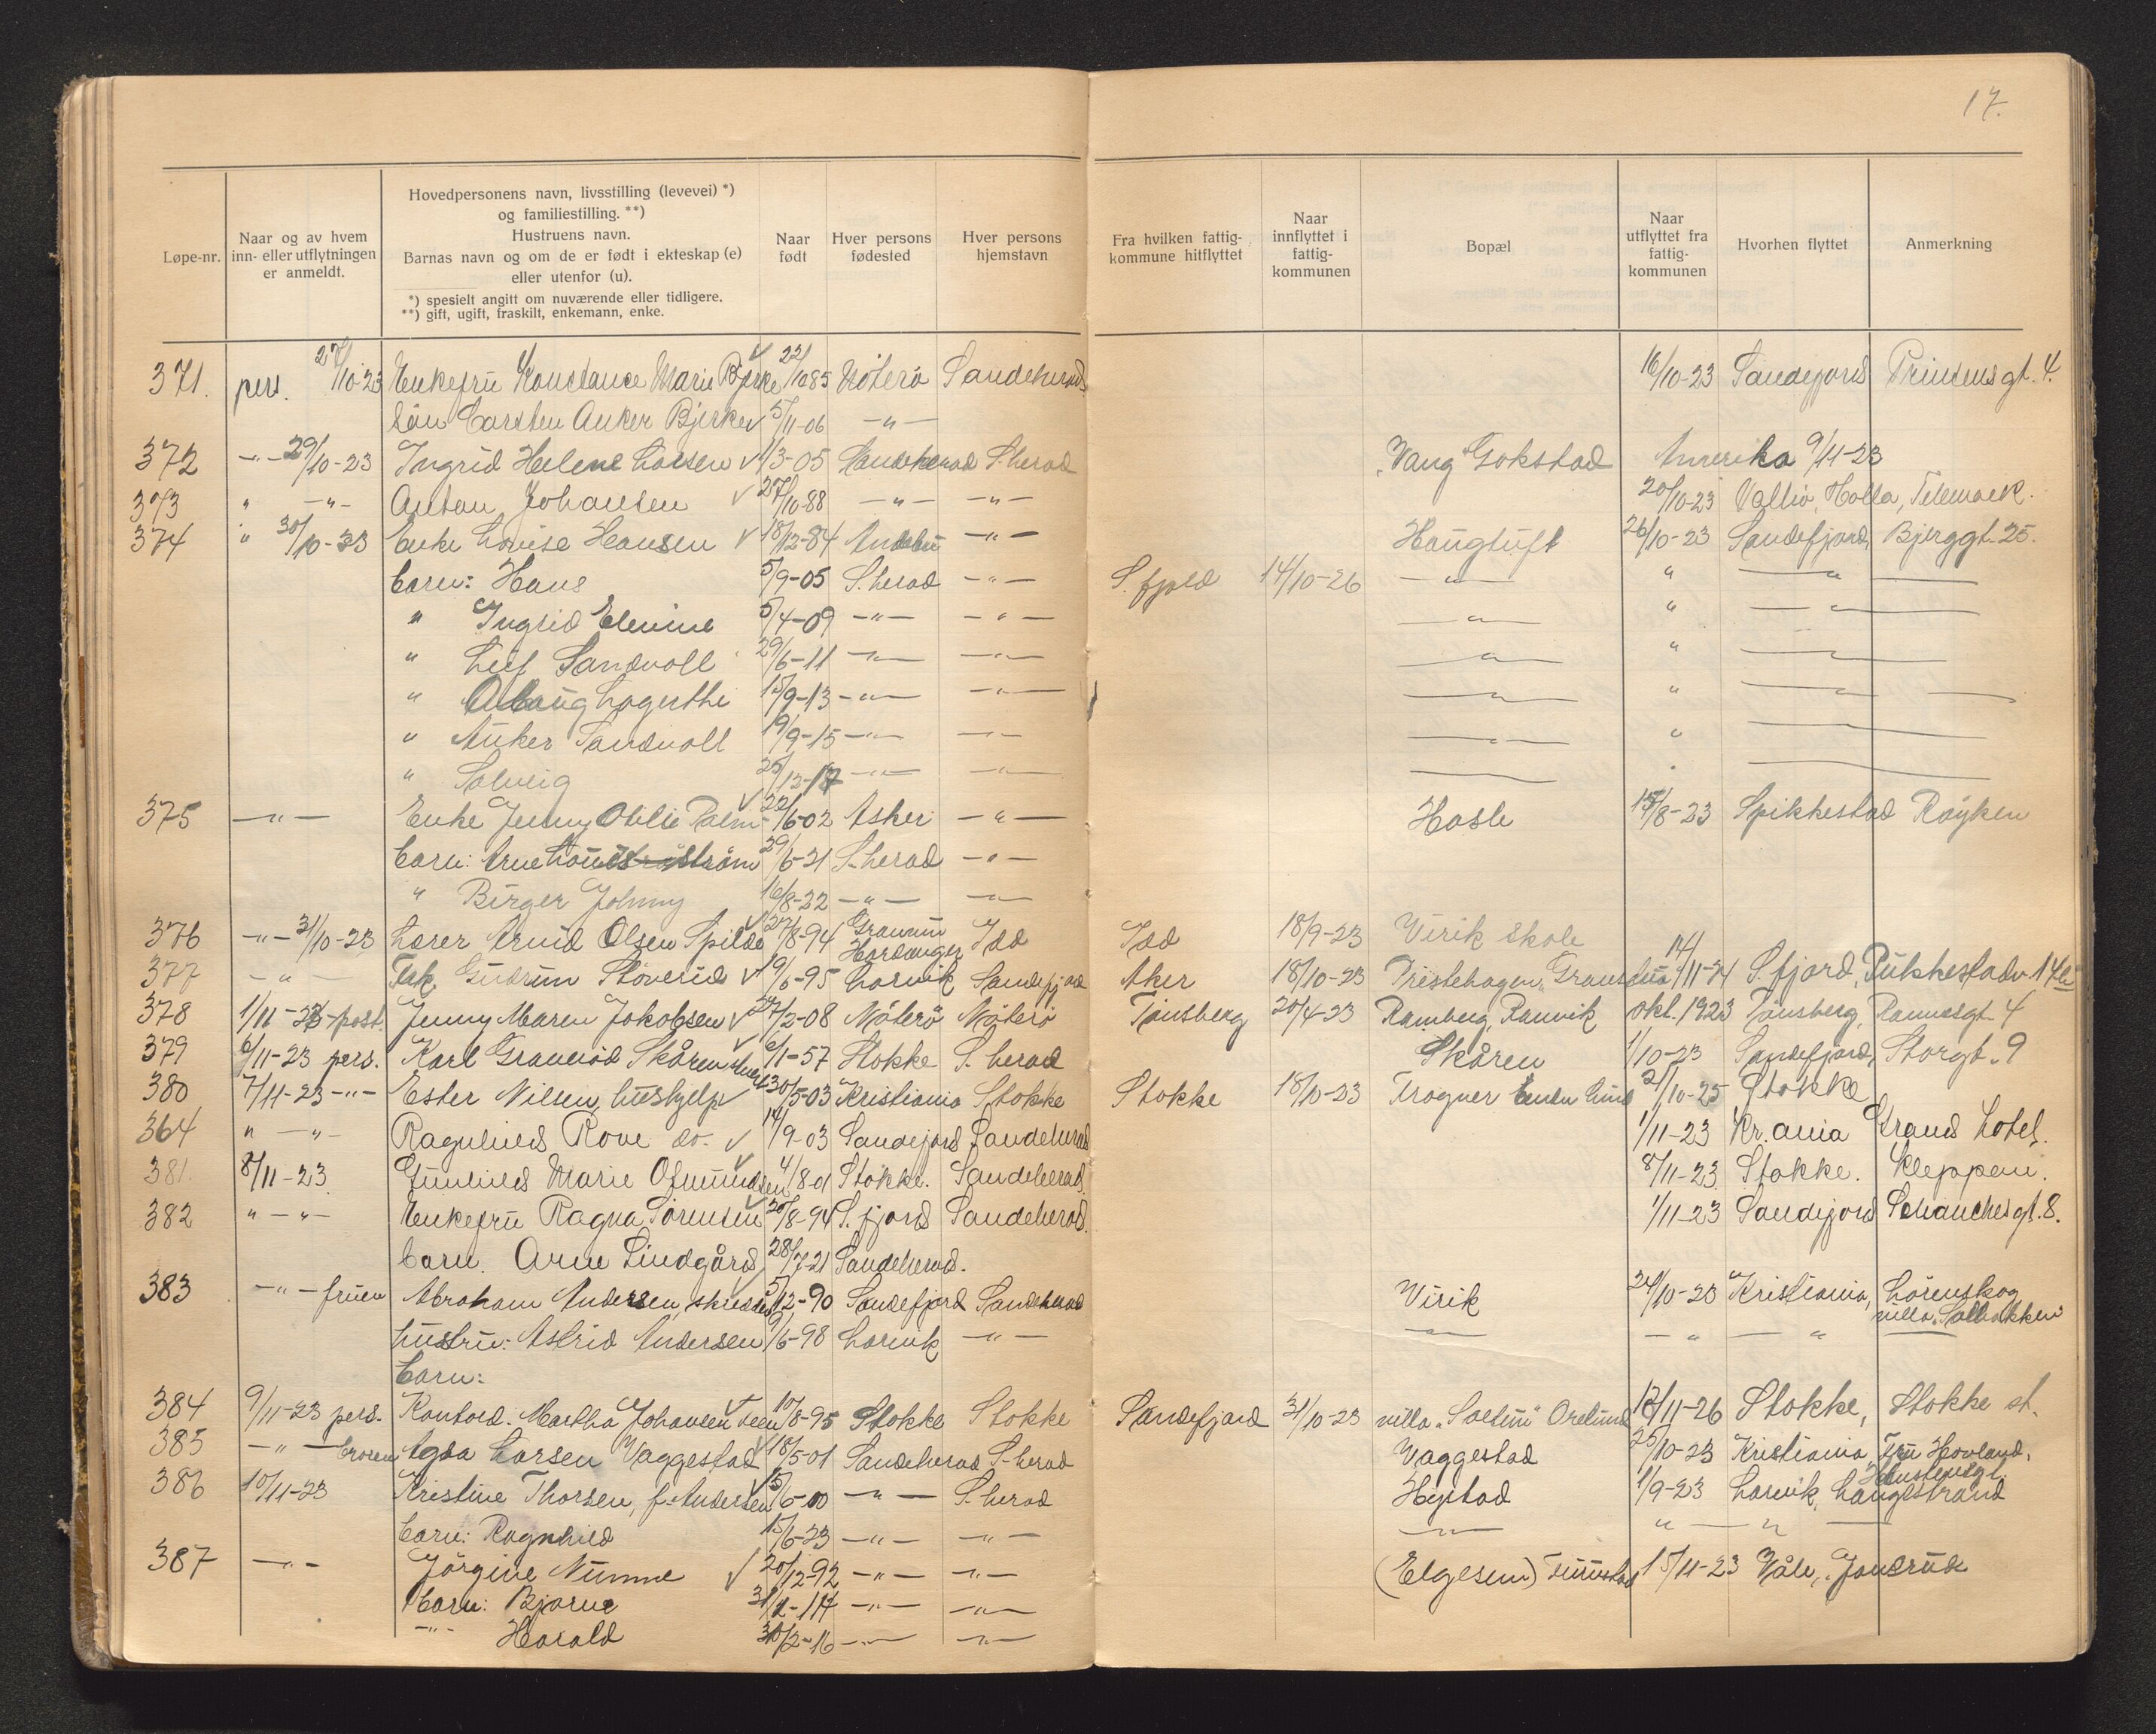 17.
Løpe-nr.
Naar og av hvem
inn- eller utflytningen
er anmeldt.
Hovedpersonens navn, livsstilling (levevei) *)
og familiestilling. **)
Hustruens navn.
Barnas navn og om de er født i ekteskap (e)
eller utenfor (u).
*) spesielt angitt om nuværende eller tidligere.
**) gift, ugift, fraskilt, enkemann, enke.
Naar
født
Hver persons
fødested
Hver persons
hjemstavn
Fra hvilken fattig-
kommune hitflyttet
Naar
innflyttet i
fattig-
kommunen
Bopæl
Naar
utflyttet fra
fattig-
kommunen
Hvorhen flyttet
Anmerkning
371. pers. 27/10-23 Enkefru Konstance Marie Bjerke 22/10 85 Nöterö Sandeherad 16/10-23 Sandefjord Prinsensgt. 4.
Sön Carsten Anker Bjerke 5/11-06 -"-
372 -"- 29/10-23 Ingrid Helene Larsen 1/3-05 Sandeherad S-herad "Vang" Gokstad Amerika 9/11-23
373 " -"- Anton Johansen 27/10-88 -"- -"- 20/10-23 Holla, Telemark.
374 " 30/10-23 Enke Lovise Hansen 18/12-84 Andebu -"- Haugtuft 26/10-23 Sandefjord, Bjerggt. 25.
barn: Hans 5/9-05 S.herad -"- S.fjord 14/10-26 -"- " -"-
" Ingrid Elenine 5/4-09 -"- -"- -"- " -"-
" Leif Sandvoll 29/6-11 -"- -"- -"- " -"-
" Aslaug Lagerthe 15/9-13 -"- -"- -"- " -"-
" Anker Sandvoll 19/9-15 -"- -"- -"- " -"-
" Solveig 25/12-17 -"- -"- -"- "
375 -"- Enke Jenny Otilie Palm 22/6-02 Asker -"- Hasle 15/8-23 Spikkestad Röyken
barn: Arne 29/6-21 S-herad -"-
" Birger Johnny 16/8-22 -"- -"-
376 -"- 31/10-23 Lærer Arvid Olsen Spilde 27/8-94 Hardanger Idd Idd 18/9-23 Virik skole
377 -"- Frk. Gudrun Stöverud 19/6-95 Larvik Sandefjord Aker 18/10-23 Pristehagen, 14/11-24 S.fjord, Pukkestadv. 14
378 1/11-23-post. Jenny Maren Jakobsen 27/2-08 Nöterö Nöterö Tönsberg 20/4-23 Ramberg, Ranvik okt. 1923 Tönsberg,
379 6/11-23 pers. Karl Graveröd Skåren 6/1-57 Stokke S.herad Skåren 1/10-23 Sandefjord, Storgt. 9
380 7/11-23 -"- Ester Nilsen, hushjelp 30/5-03 Kristiania Stokke Stokke 18/10-23 Trogner 21/10-25 Stokke
364 " -"- Ragnhild Rove do. 14/9-03 Sandefjord Sandeherad 1/11-23 Kr.ania Grand hotel.
381. 8/11-23 Gunhild Marie Osmundsen 4/8-01 Stokke. Sandeherad. 8/11-23 Stokke. Kleppan.
382 " -"- Enkefru Ragna Sörensen 20/8-94 S.fjord Sandeherad 1/11-23 Sandefjord Schanchesgt. 8.
barn. Arne Lindgård 28/7-21 Sandeherad.
383 -"- fruen Abraham Andersen, 5/12-90 Sandefjord Sandeherad Virik 24/10-23 Kristiania, Lörenskog
villa "Solbakken"
hustru: Astrid Andersen 1/6-98 Larvik -"- -"- -"- -"-
barn:
384 9/11-23 pers. Kontord. Martha Johansen 10/8-95 Stokke Stokke Sandefjord 31/10-23 villa "Soltun" Orelund 12/11-26 Stokke, Stokke st.
385 -"- broren Agda Larsen Vaggestad 18/5-01 Sandeherad S-herad Vaggestad 25/10-23 Kristiania, Fru Hovland.
386 10/11-23 Kristine Thorsen, f. Andersen 15/6-00 -"- S.herad Hystad 1/9-23 Larvik, Langestrand
barn: Ragnhild 15/6-23 -"- -"- -"- " -"-
387 -"- Jörgine Numme 20/12-92 -"- -"- (Elgesem) 15/11-23 Våle,
barn: Bjarne -"- -"-
-"- Harald 30/2-16 -"- -"-